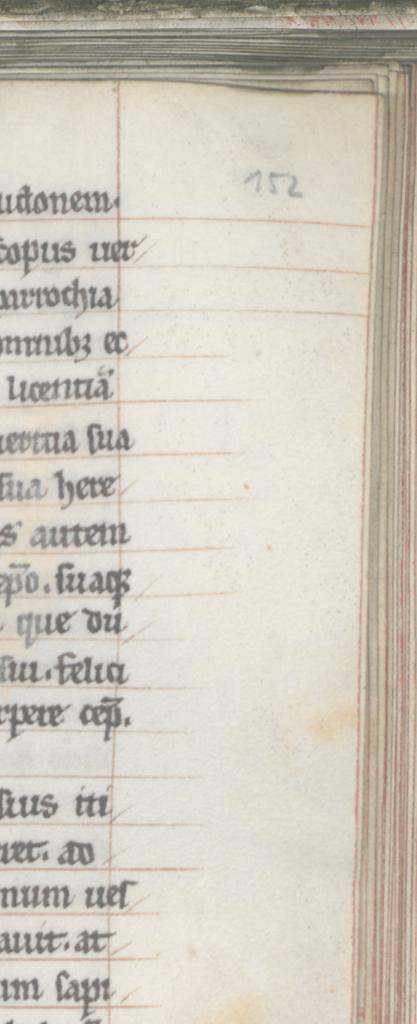 152
uctonem.
copus uer
parrochia
omnib; ec
licentiā
uertia sua
sua here
s autem
ep̄o. suaq;
que dū
sui. felici
rpere cep̄.
sius iti
ret. ad
num ues
auit. at
um sapi